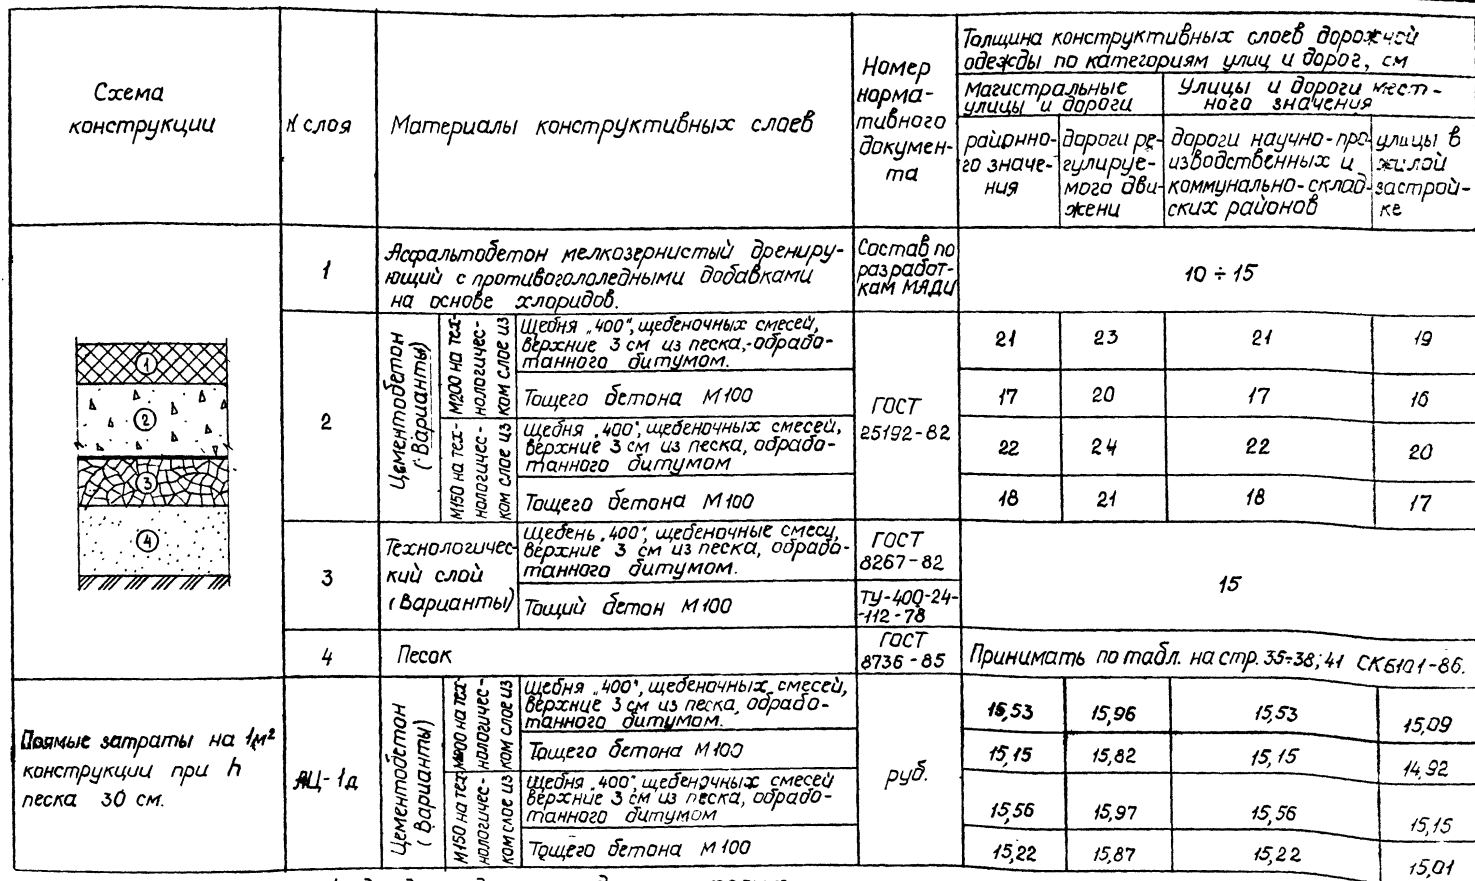 Схема
конструкции
N слоя
Материалы конструктивных слоев
Номер
норма-
тивного
докумен-
та
Толщина конструктивных слоев дорожной
одежды по категориям улиц и дорог, см
Магистральные
улицы и дороги
Улицы и дороги мест-
ного значения
районно-
го значе-
ния
дороги ре-
гулируе-
мого дви-
жени
дороги научно-про-
изводственных и
коммунально-склад-
ских районов
улицы в
жилой
застрой-
ке
1
Асфальтобетон мелкозернистый дрениру-
ющий с противогололедными добавками
на основе хлоридов.
Состав по
разработ-
кам МАДИ
10 ÷ 15
2
Цементобетон
(Варианты)
М200 на тех-
нологичес-
ком слое из
Щебня „400“, щебеночных смесей,
верхние 3 см из песка, обрабо-
танного битумом.
21 23 21 19
Тощего бетона М100
17 20 17 16
ГОСТ
25192-82
М150 на тех-
нологичес-
ком слое из
Щебня „400“, щебеночных смесей,
верхние 3 см из песка, обрабо-
танного битумом
22 24 22 20
Тощего бетона М100
18 21 18 17
3
Технологичес-
кий слой
(Варианты)
Щебень „400“, щебеночные смеси,
верхние 3 см из песка, обрабо-
танного битумом.
ГОСТ
8267-82
15
Тощий бетон М100
ТУ-400-24-
-112-78
4
Песок
ГОСТ
8736-85
Принимать по табл. на стр. 35÷38; 41 СК6101-86.
1
2
3
4
Прямые затраты на 1м²
конструкции при h
песка 30 см.
АЦ-1д
Цементобетон
(Варианты)
М200 на тех-
нологичес-
ком слое из
Щебня „400“, щебеночных смесей,
верхние 3 см из песка, обрабо-
танного битумом.
15,53 15,96 15,53 15,09
Тощего бетона М100
15,15 15,82 15,15 14,92
руб.
М150 на тех-
нологичес-
ком слое из
Щебня „400“, щебеночных смесей
верхние 3 см из песка, обрабо-
танного битумом
15,56 15,97 15,56 15,15
Тощего бетона М100
15,22 15,87 15,22 15,01